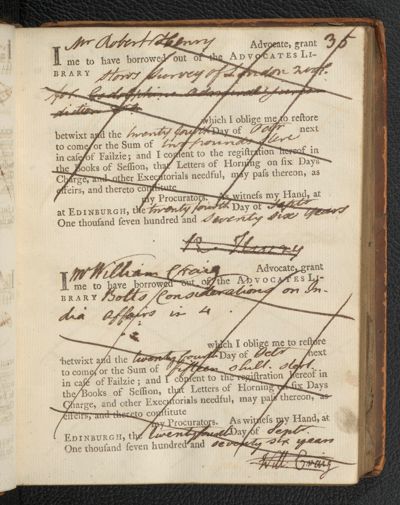 35
I Mr Robert Henry Advocate, grant
me to have borrowed out of the ADVOCATES LI-
BRARY Stows Survey of London 2 vol.
fol.
diction
which I oblige me to reſtore
betwixt and the twenty fourth Day of Octr next
to come, or the Sum of two pounds
in caſe of Failzie; and I conſent to the regiſtration hereof in
the Books of Seſſion, that Letters of Horning on ſix Days
Charge, and other Executorials needful, may paſs thereon, as
effeirs, and thereto conſtitute
my Procurators. As witneſs my Hand, at
at EDINBURGH, the twenty fourth Day of Septr
One thouſand ſeven hundred and seventy six years
R. Henry
I Mr William Craig Advocate, grant
me to have borrowed out of the ADVOCATES LI-
BRARY Bolts Considerations on In-
dia affairs in 4
which I oblige me to reſtore
betwixt and the twenty fourth Day of Octr next
to come, or the Sum of fifteen shill. sterl.
in caſe of Failzie; and I conſent to the regiſtration hereof in
the Books of Seſſion, that Letters of Horning on ſix Days
Charge, and other Executorials needful, may paſs thereon, as
effeirs, and thereto conſtitute
my Procurators. As witneſs my Hand, at
EDINBURGH, the twenty fourth Day of Septr
One thouſand ſeven hundred and seventy six years
Will. Craig